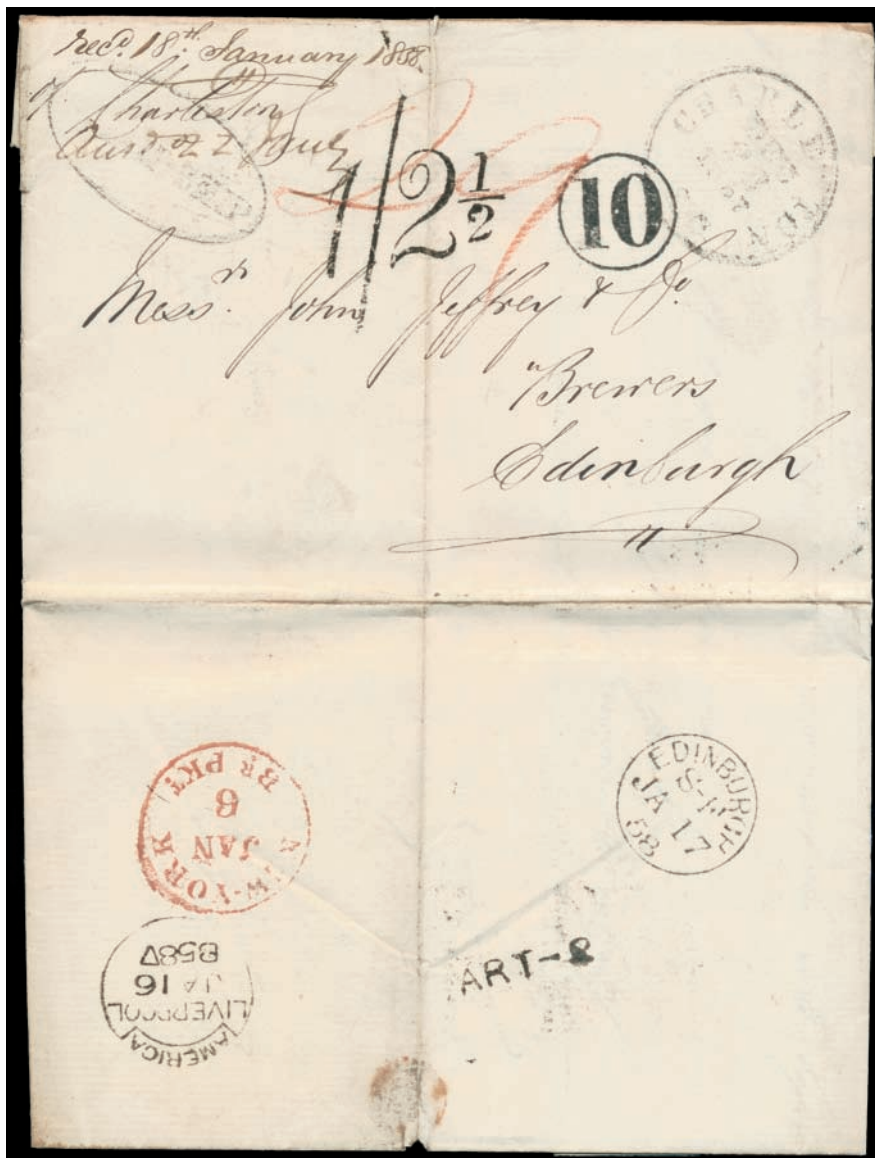 Recd. 18th. January 1858
of Charleston
Ansd 22 Jany
CHARLESTON
DEC
1/2½
10
Messrs. John Jeffrey & Co.
Brewers
Edinburgh
NEW-YORK
JAN
6
BR PKT
EDINBURGH
JA 17
58
AMERICA
LIVERPOOL
JA 16
B58V
ART-8